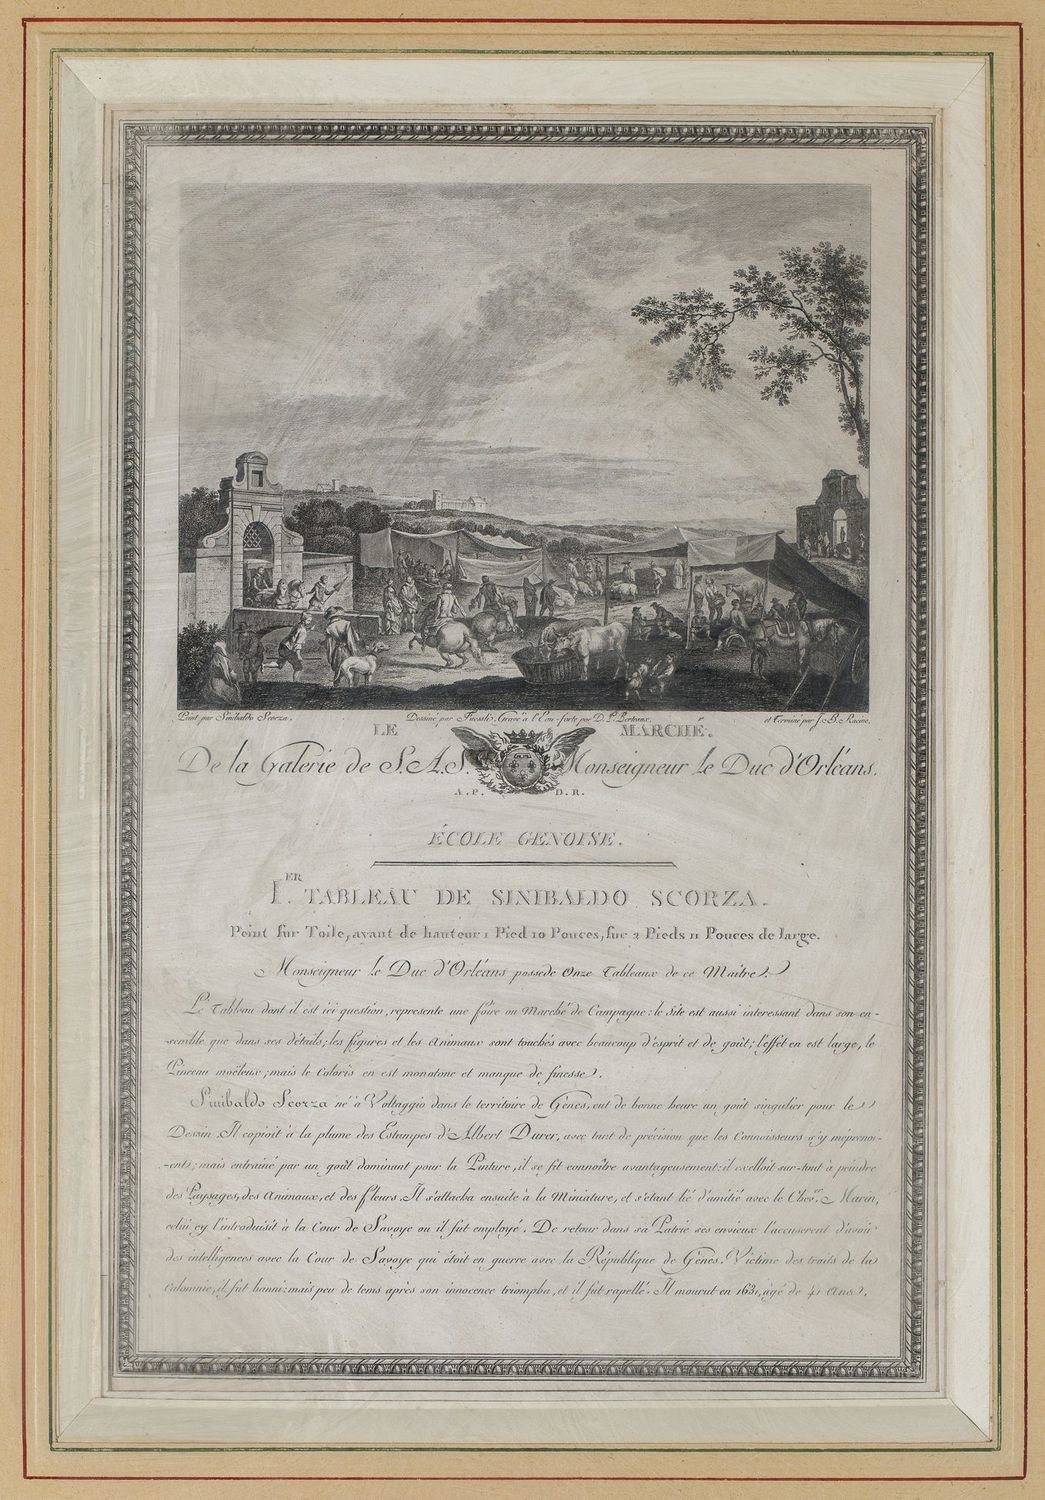 Peint par Sinibaldo Scorza.
Dessiné par Fuessli, Gravé à l'Eau-forte par D. P. Bertaux,
et Terminé par J. B. Racine.
LE MARCHÉ.
De la Galerie de S. A. S. Monseigneur le Duc d'Orléans.
A. P. D. R.
ÉCOLE GENOISE.
I.ER TABLEAU DE SINIBALDO SCORZA.
Peint sur Toile, ayant de hauteur 1 Pied 10 Pouces, sur 2 Pieds 11 Pouces de large.
Monseigneur le Duc d'Orléans possede Onze Tableaux de ce Maître.
Le Tableau dont il est ici question, represente une foire ou Marché de Campagne: le Site est aussi interessant dans son en-
semble que dans ses détails; les figures et les Animaux sont touchés avec beaucoup d'esprit et de goût; l'effet en est large, le
Pinceau moëleux; mais le Coloris en est monotone et manque de finesse.
Sinibaldo Scorza né à Voltaggio dans le territoire de Gênes, eut de bonne heure un goût singulier pour le
Dessin. Il copioit à la plume des Estampes d'Albert Durer, avec tant de précision que les Connoisseurs s'y méprenoi-
-ent; mais entrainé par un goût dominant pour la Pinture, il se fit connoître avantageusement: il excelloit sur-tout à peindre
des Paysages, des Animaux, et des fleurs. Il s'attacha ensuite à la Miniature, et s'étant lié d'amitié avec le Chev.er Marin,
celui cy l'introduisit à la Cour de Savoye ou il fut employé. De retour dans sa Patrie ses envieux l'accuserent d'avoir
des intelligences avec la Cour de Savoye qui étoit en guerre avec la République de Gênes. Victime des traits de la
Calomnie, il fut banni: mais peu de tems après son innocence triompha, et il fut rapellé. Il mourut en 1631, âgé de 41 Ans.